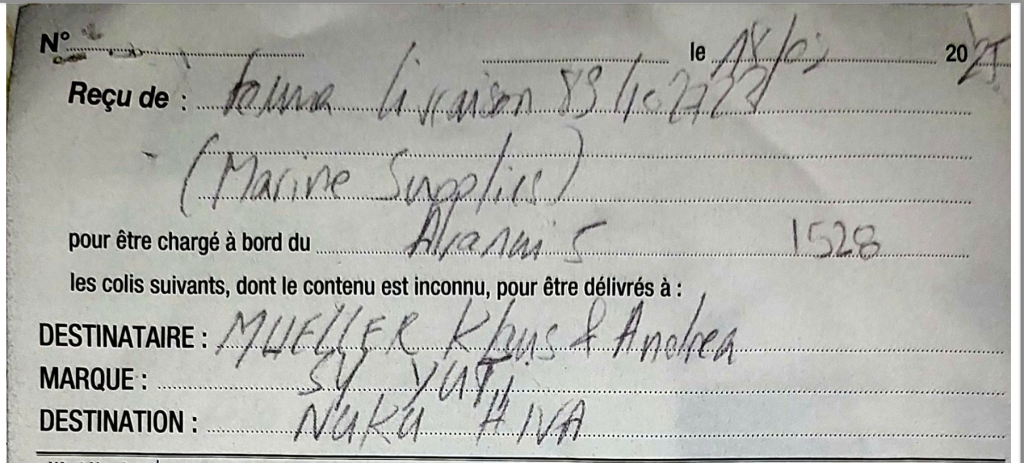 N° le 18/03 2025
Reçu de : livraison 89/402727
(Marine Supplies)
pour être chargé à bord du Aranui 5 1528
les colis suivants, dont le contenu est inconnu, pour être délivrés à :
DESTINATAIRE : MUELLER Klaus & Andrea
MARQUE : SY YUTI
DESTINATION : NUKU HIVA